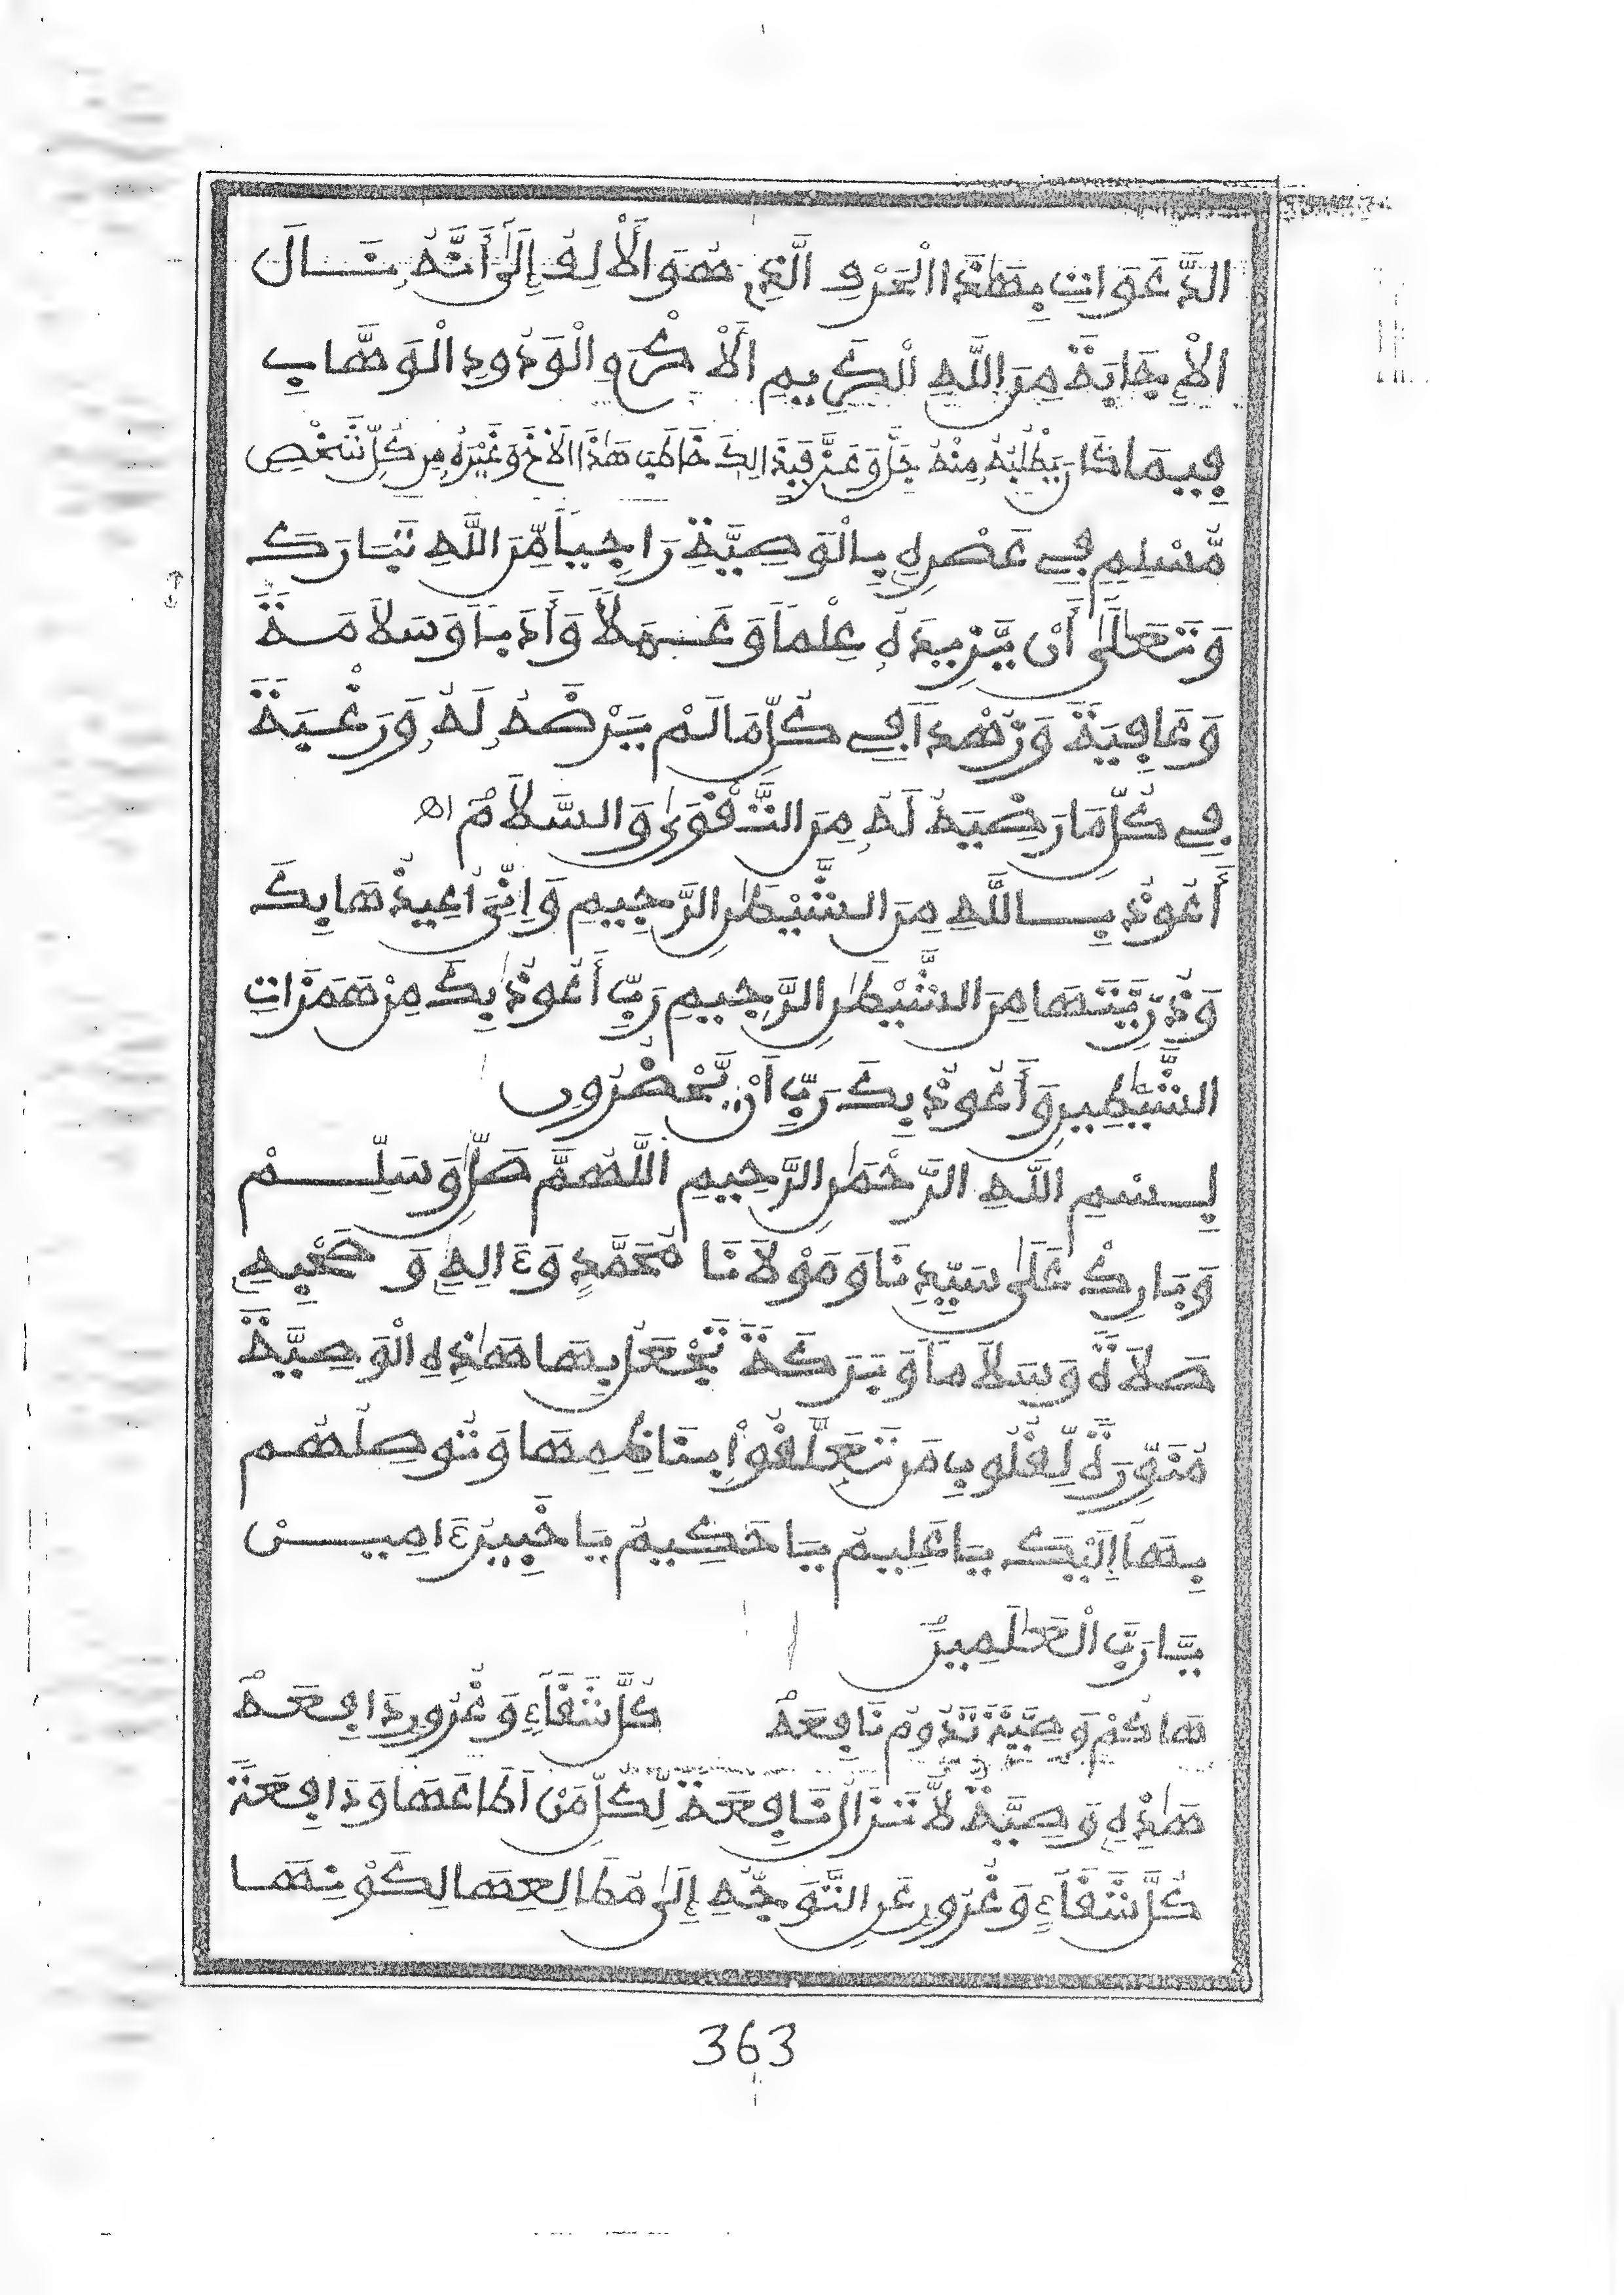 الدَّعَوَاتِ بِهَٰذَا الْحَرْفِ الَّذِي هُوَ الْأَلِفُ إِلَىٰ أَنَّهُ نَالَ
الْإِجَابَةَ مِنَ اللَّهِ الْكَرِيمِ الْأَكْرَمِ الْوَدُودِ الْوَهَّابِ
فِيمَا كَانَ يَطْلُبُهُ مِنْهُ جَلَّ وَعَزَّ فَبِذَالِكَ خَاطَبَ هَٰذَا الْأَخَ وَغَيْرَهُ مِن كُلِّ شَخْصٍ
مُّسْلِمٍ فِي عَصْرِهِ بِالْوَصِيَّةِ رَاجِياً مِّنَ اللَّهِ تَبَارَكَ
وَتَعَالَىٰ أَنْ يَّزِيدَهُ عِلْماً وَعَمَلاً وَأَدَباً وَسَلَامَةً
وَعَافِيَةً وَزُهْداً فِي كُلِّ مَا لَمْ يَرْضَهُ لَهُ وَرَغْبَةً
فِي كُلِّ مَا رَضِيَهُ لَهُ مِنَ التَّقْوَىٰ وَالسَّلَامُ اهـ
أَعُوذُ بِاللَّهِ مِنَ الشَّيْطَٰنِ الرَّجِيمِ وَإِنِّيَ أُعِيذُهَا بِكَ
وَذُرِّيَّتَهَا مِنَ الشَّيْطَٰنِ الرَّجِيمِ رَبِّ أَعُوذُ بِكَ مِنْ هَمَزَاتِ
الشَّيَٰطِينِ وَأَعُوذُ بِكَ رَبِّ أَنْ يَّحْضُرُونِ
بِسْمِ اللَّهِ الرَّحْمَٰنِ الرَّحِيمِ اللَّهُمَّ صَلِّ وَسَلِّمْ
وَبَارِكْ عَلَىٰ سَيِّدِنَا وَمَوْلَانَا مُحَمَّدٍ وَءَالِهِ وَصَحْبِهِ
صَلَاةً وَسَلَاماً وَبَرَكَةً تَجْعَلُ بِهَا هَٰذِهِ الْوَصِيَّةَ
مُنَوِّرَةً لِّقُلُوبِ مَن تَعَلَّقُواْ بِنَاظِمِهَا وَتُوصِلُهُم
بِهَا إِلَيْكَ يَا عَلِيمُ يَا حَكِيمُ يَا خَبِيرُ ءَامِيـنْ
يَا رَبَّ الْعَٰلَمِينَ
هَاكُمْ وَصِيَّةً تَدُومُ نَافِعَهْ كُلَّ شَقَاءٍ وَغُرُورٍ دَافِعَهْ
هَٰذِهِ وَصِيَّةٌ لَّا تَزَالُ نَافِعَةً لِّكُلِّ مَنْ أَطَاعَهَا وَدَافِعَةً
كُلَّ شَقَاءٍ وَغُرُورٍ عَنِ التَّوَجُّهِ إِلَىٰ مُطَالِعِهَا لِكَوْنِهَا
363